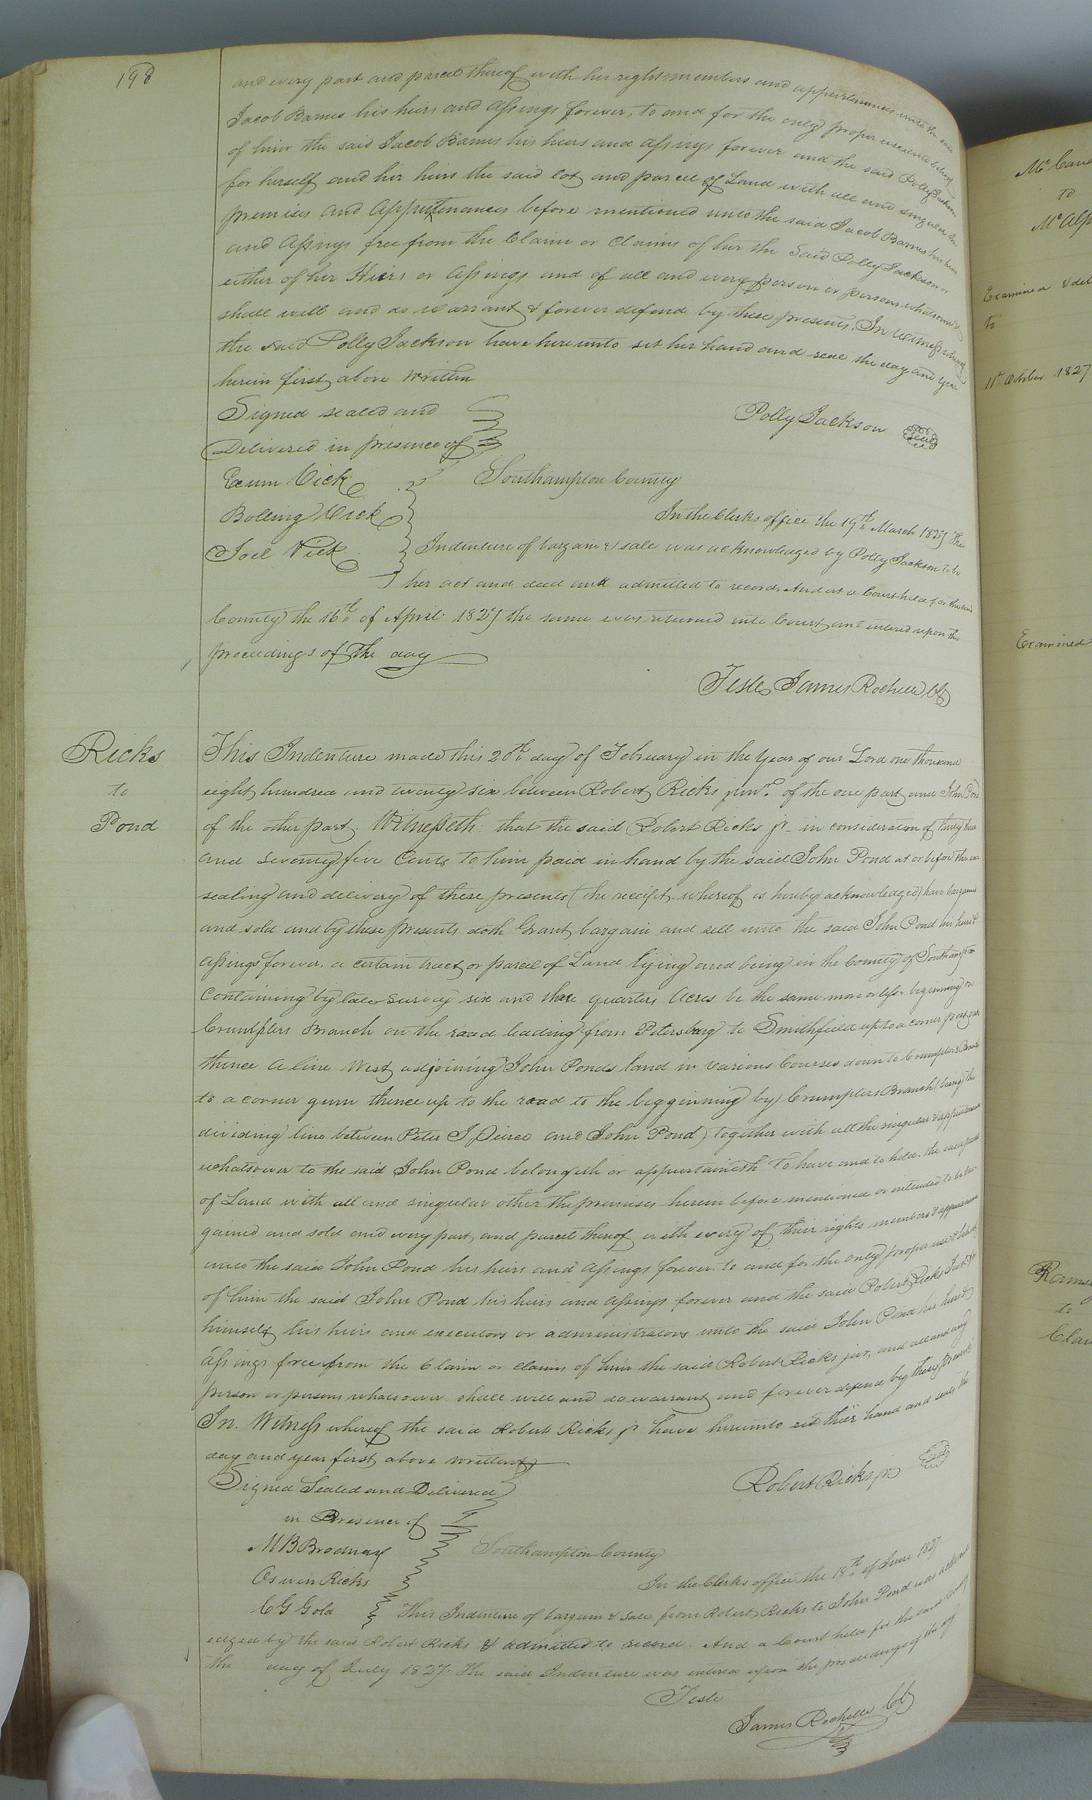 198
and every part and parcel thereof with her rights members and appurtenances unto the said
Jacob Barnes his heirs and Assings forever, to and for the only proper use and behoof
of him the said Jacob Barnes his heirs and Assings forever and the said Polly Jackson
for herself and her heirs the said lot and parcel of Land with all and singular the
premises and Appurtenances before mentioned unto the said Jacob Barnes his heirs
and Assings free from the Claim or Claims of her the Said Polly Jackson or
either of her Heirs or Assings and of all and every person or persons whatsoever
shall will and do warrant & forever defend by these presents. In Witness whereof
the said Polly Jackson have hereunto set her hand and seal the day and year
herein first above Written
Signed sealed and
Polly Jackson Seal
Delivered in presence of
Exum Vick
Southampton County
Bolling Vick
In the Clerks office the 19th March 1827 This
Joel Vick
Indenture of bargain & sale was acknowledged by Polly Jackson to be
her act and deed and admitted to record And at a Court held for the said
County the 16th of April 1827 the same was returned into Court and entered upon the
proceedings of the day
Teste James Rochelle Clk
Ricks
to
Pond
This Indenture made this 20th day of February in the Year of our Lord one thousand
eight hundred and twenty six between Robert Ricks junr. of the one part and John Pond
of the other part. Witnesseth that the said Robert Ricks jr. in consideration of
and Seventy five Cents to him paid in hand by the said John Pond at or before the
sealing and delivery of these presents (the receipt whereof is hereby acknowledged) have bargained
and sold and by these presents doth Grant bargain and sell unto the said John Pond his heirs &
Assings forever a certain tract or parcel of Land lying and being in the County of Southampton
Containing by late survey six and three quarters Acres be the same more or less beginning on
Crumplers Branch on the road leading from Petersburg to Smithfield up to a corner
thence a line West adjoining John Ponds land in various Courses down to Crumplers Branch
to a corner gum thence up to the road to the beggenning by Crumplers Branch (being the
dividing line between Peter J Pierce and John Pond) together with all the singular & appurtenances
whatsoever to the said John Pond belongeth or appertaineth To have and to hold the
of Land with all and singular other the premises herein before mentioned or intended to be bar
gained and sold and every part and parcel thereof with every of their rights members & appurtenances
unto the said John Pond his heirs and Assings forever to and for the only proper use & behoof
of him the said John Pond his heirs and Assings forever and the said Robert Ricks
himself his heirs and executors or administrators unto the said John Pond his heirs &
Assings free from the Claim or claims of him the said Robert Ricks junr. and all and every
person or persons whatsoever shall will and do warrant and forever defend by these presents
In Witness whereof the said Robert Ricks jr have hereunto set their hand and seal the
day and year first above written
Signed Sealed and Delivered
Robert Ricks jr. Seal
in Presence of
M B Brodnax
Southampton County
Oswin Ricks
In the Clerks office the 18th of June 1827
C G Gold
This Indenture of bargain & sale from Robert Ricks to John Pond was acknowl
edged by the said Robert Ricks & admitted to record. And a Court held for the said County
the day of July 1827 The said Indenture was entered upon the proceedings of the day
Teste
James Rochelle Clk
to
Examined & del
to
11th October 1827
Examined
to